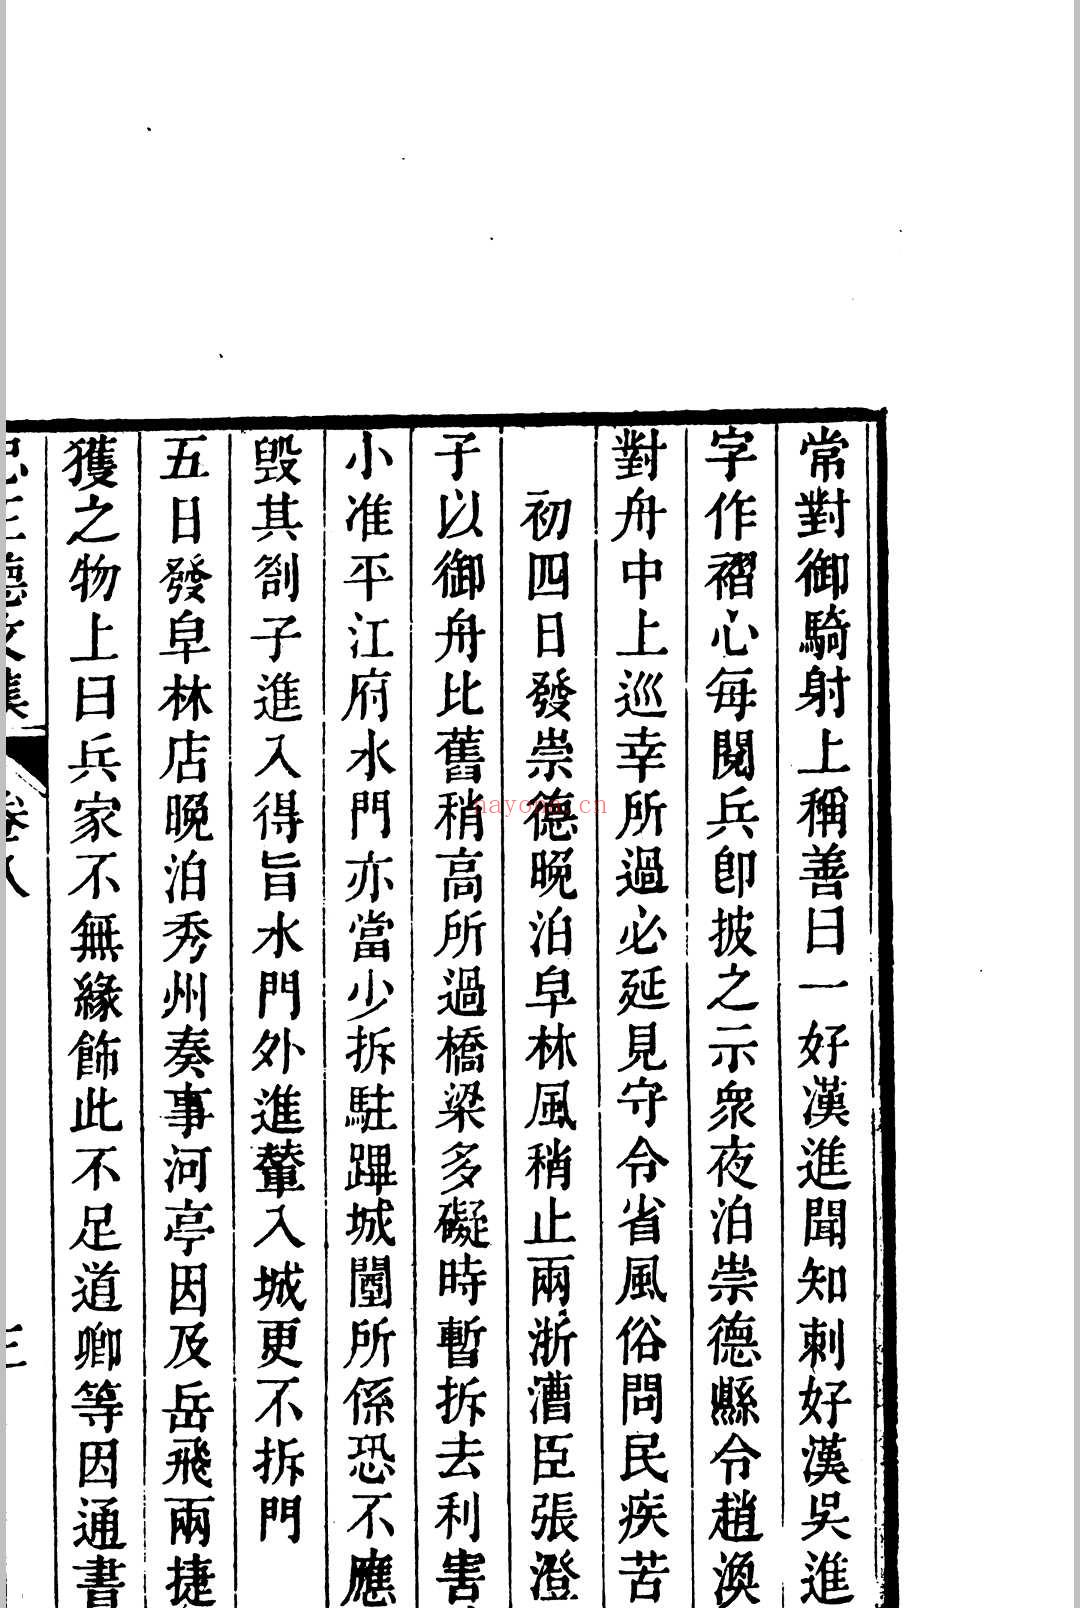 常對御騎射上稱善曰一好漢進聞知刺好漢吳進
字作褶心每閱兵卽披之示衆夜泊崇德縣令趙渙
對舟中上巡幸所過必延見守令省風俗問民疾苦
初四日發崇德晚泊皁林風稍止兩浙漕臣張澄
子以御舟比舊稍高所過橋梁多礙時暫拆去利害
小准平江府水門亦當少拆駐蹕城闉所係恐不應
毀其劄子進入得旨水門外進輦入城更不拆門
五日發皁林店晚泊秀州奏事河亭因及岳飛兩捷
獲之物上曰兵家不無緣飾此不足道卿等因通書
忠正德文集 卷八 三
nayona.cn